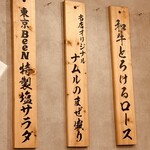 和牛とろけるロース
名店オリジナル
ナムルのまぜ盛り
東京BeeN特製塩サラダ